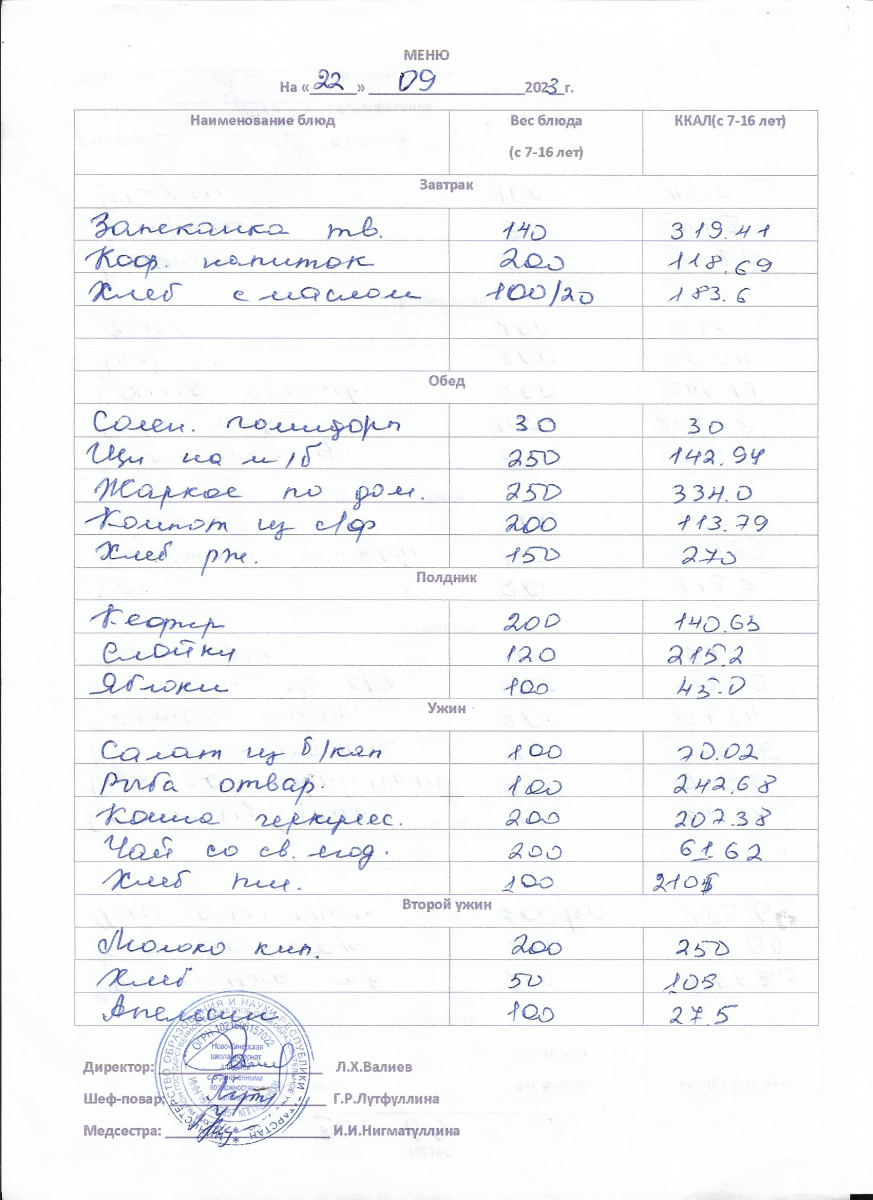 МЕНЮ
На «22» 09 2023 г.
Наименование блюд Вес блюда (с 7-16 лет) ККАЛ(с 7-16 лет)
Завтрак
Запеканка тв. 140 319.41
Коф. напиток 200 118.69
Хлеб с маслом 100/20 183.6
Обед
Солен. помидоры 30 30
Щи на м/б 250 142.94
Жаркое по дом. 250 334.0
Компот из с/ф 200 113.79
Хлеб рж. 150 270
Полдник
Кефир 200 140.63
Слойки 120 215.2
Яблоки 100 45.0
Ужин
Салат из б/кап 100 70.02
Рыба отвар. 100 242.68
Каша геркулес. 200 207.38
Чай со св. ягод. 200 61.62
Хлеб пш. 100
Второй ужин
Молоко кип. 200 250
Хлеб 50 103
Апельсин 100 27.5
ОГРН 1021606157022
Ново-Кинерская
школа-интернат
Директор: Л.Х.Валиев
Шеф-повар: Г.Р.Лутфуллина
Медсестра: И.И.Нигматуллина